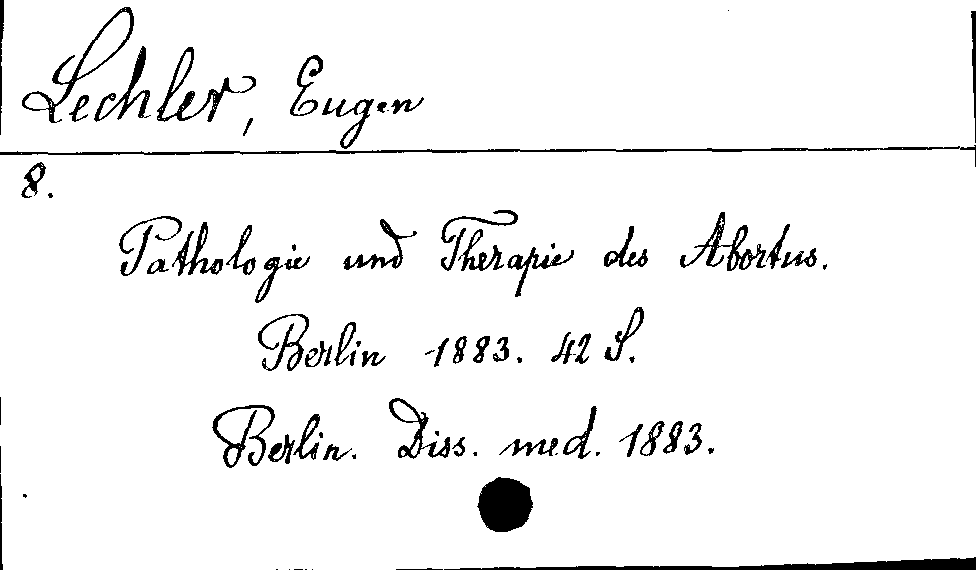 Lechler, Eugen
8.
Pathologie und Therapie des Abortus.
Berlin 1883. 42 S.
Berlin. Diss. med. 1883.